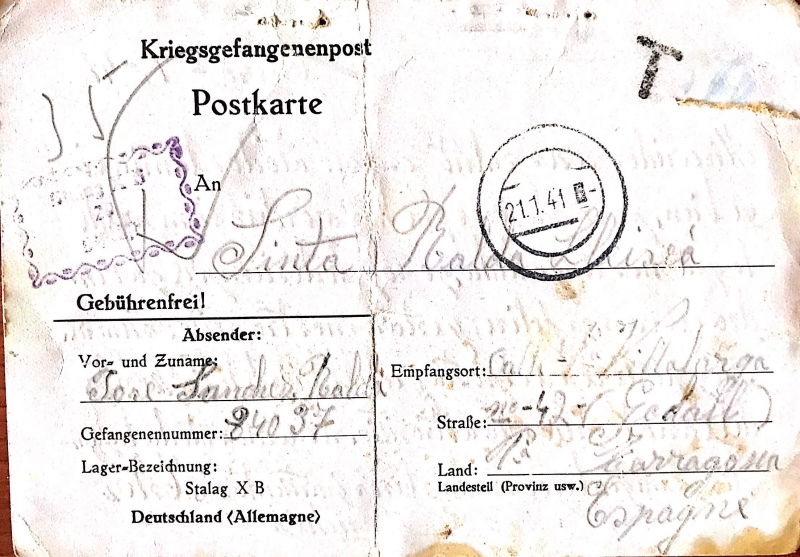 Kriegsgefangenenpost
T
Postkarte
An
21.1.41
Sinta Kalda
Gebührenfrei!
Absender:
Vor- und Zuname:
Jose Sanchez
Gefangenennummer: 84037
Lager-Bezeichnung:
Stalag X B
Deutschland (Allemagne)
Empfangsort: Calle Villalarga
Straße: no -42-
Land: Tarragona
Landesteil (Provinz usw.)
Espagne